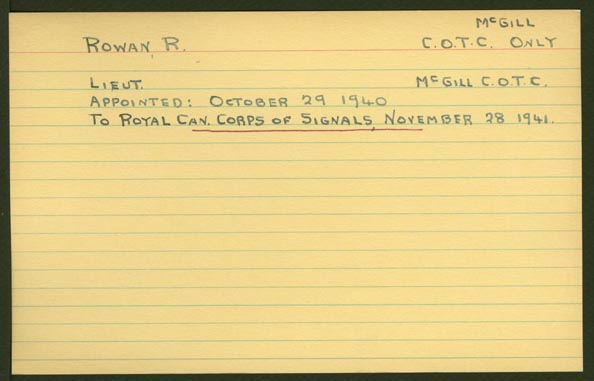 McGILL
ROWAN, R. C.O.T.C. ONLY
LIEUT. McGILL C.O.T.C.
APPOINTED: OCTOBER 29 1940
TO ROYAL CAN. CORPS OF SIGNALS, NOVEMBER 28 1941.